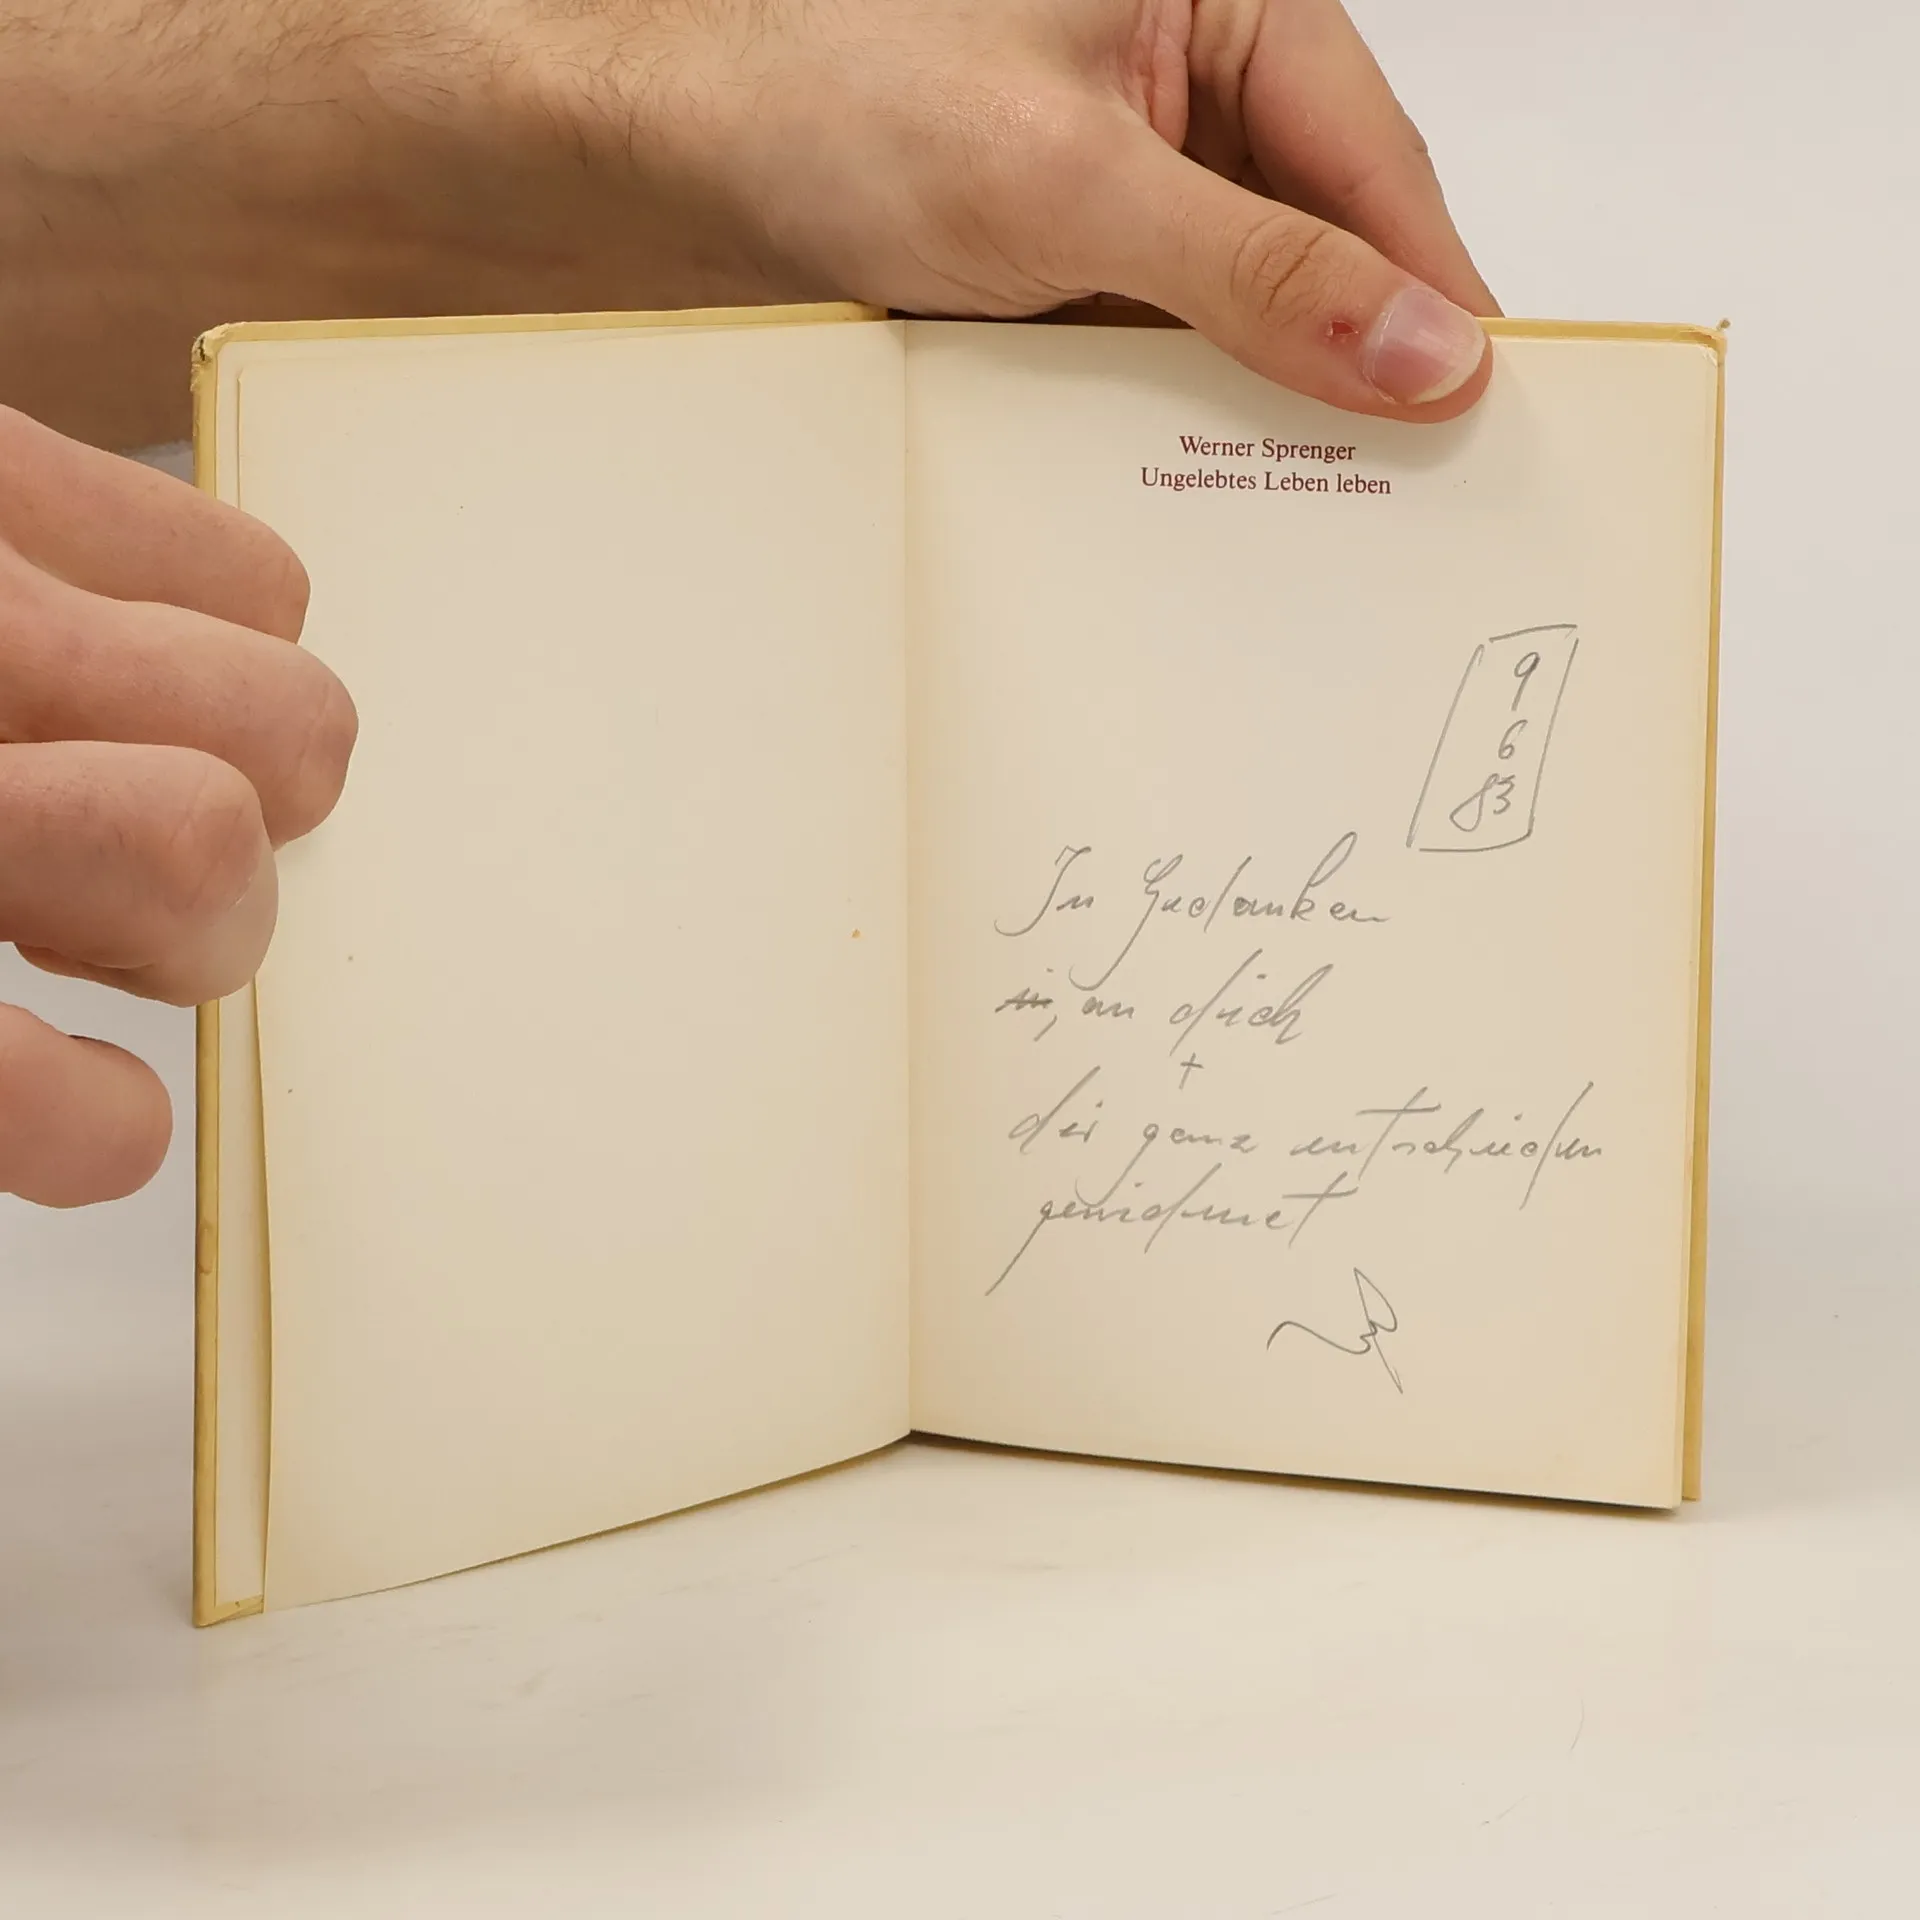 Werner Sprenger
Ungelebtes Leben leben
9
6
83
In Gedanken
in, an dich
+
dir ganz entschieden
gewidmet